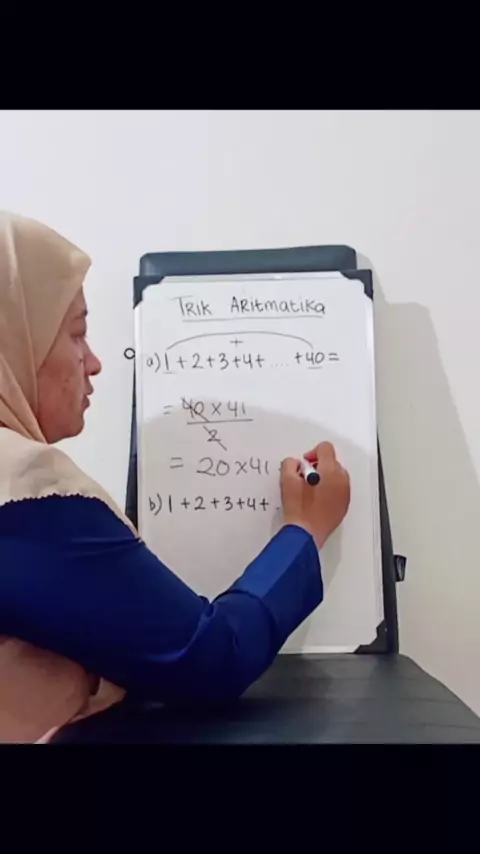 TRIK ARITMATIKA
+
a) 1 + 2 + 3 + 4 + .... + 40 =
= 40 x 41
2
= 20 x 41
b) 1 + 2 + 3 + 4 + .